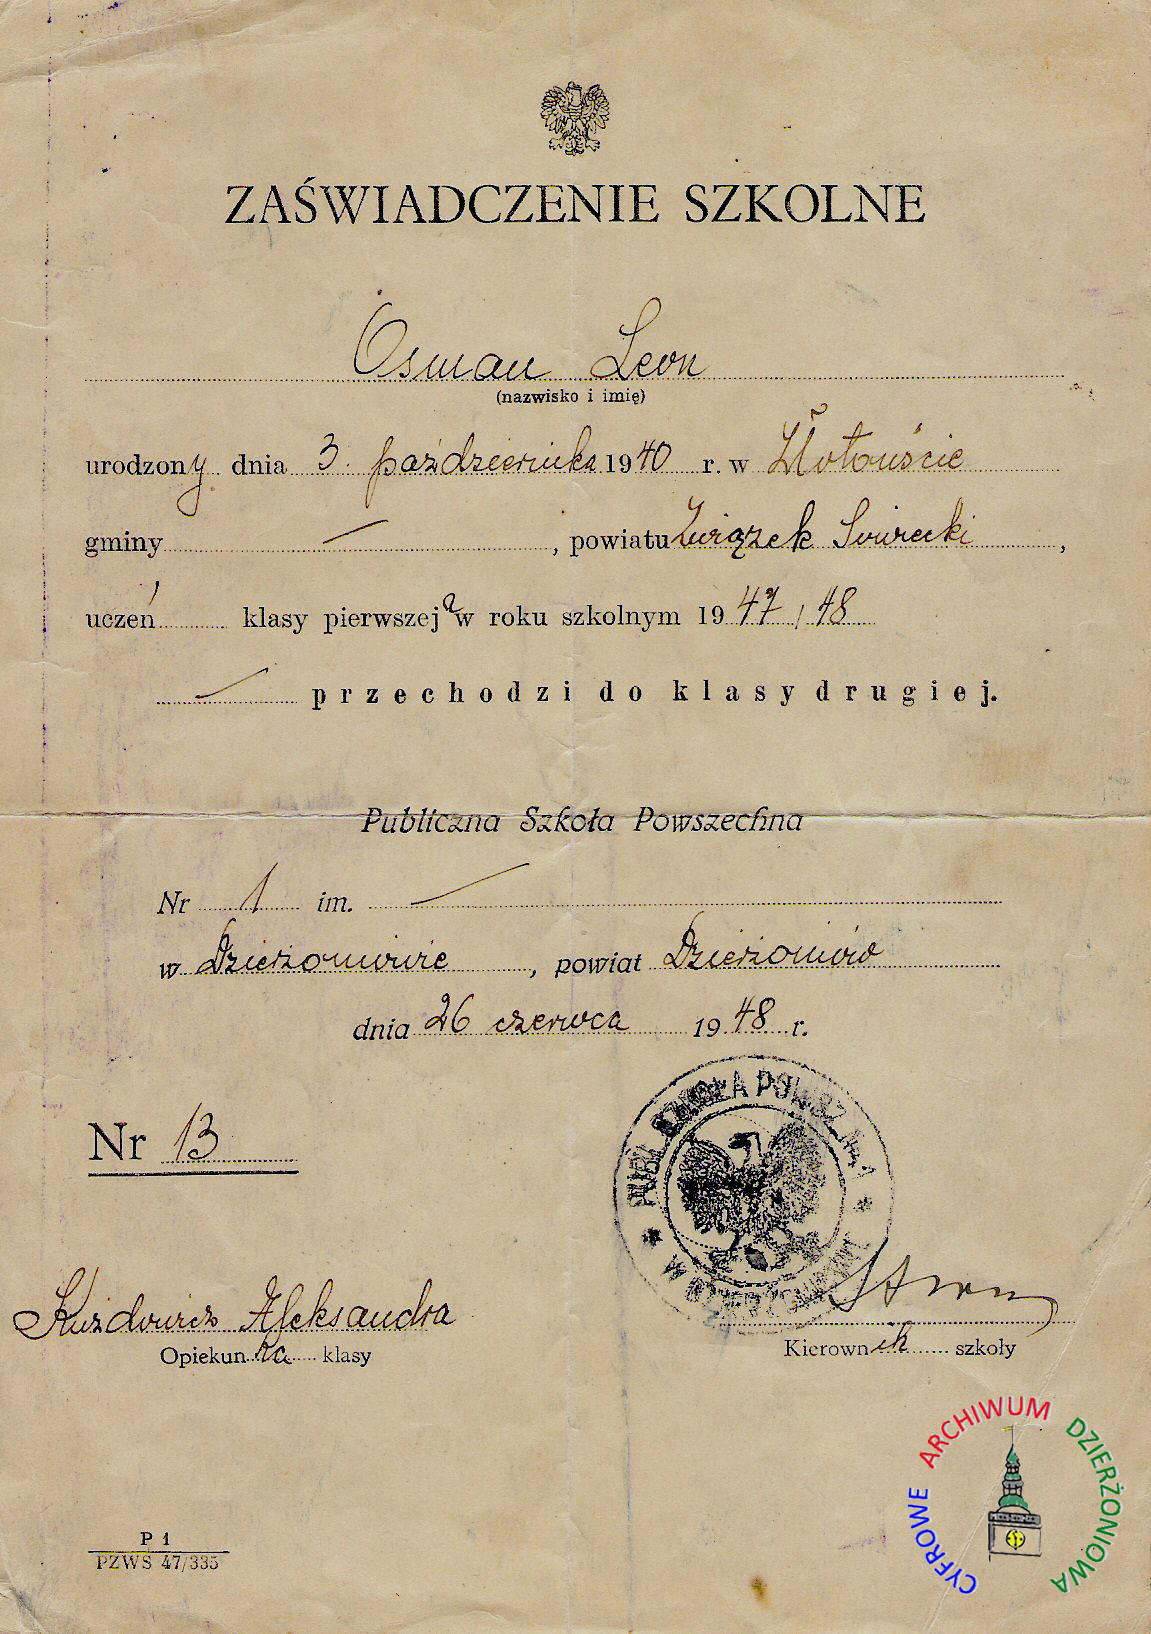 ZAŚWIADCZENIE SZKOLNE
Osman Leon
(nazwisko i imię)
urodzony dnia 3. października 1940 r. w Złotouście
gminy — , powiatu Związek Sowiecki ,
uczeń klasy pierwszej a w roku szkolnym 1947/48
— przechodzi do klasy drugiej.
Publiczna Szkoła Powszechna
Nr 1 im. —
w Dzierżoniowie , powiat Dzierżoniów
dnia 26 czerwca 1948 r.
PUBL. SZKOŁA POWSZ. Nr 1
W DZIERŻONIOWIE
Nr 13
Kuźdowicz Aleksandra
Opiekunka klasy
Kierownik szkoły
CYFROWE ARCHIWUM DZIERŻONIOWA
P 1
PZWS 47/335